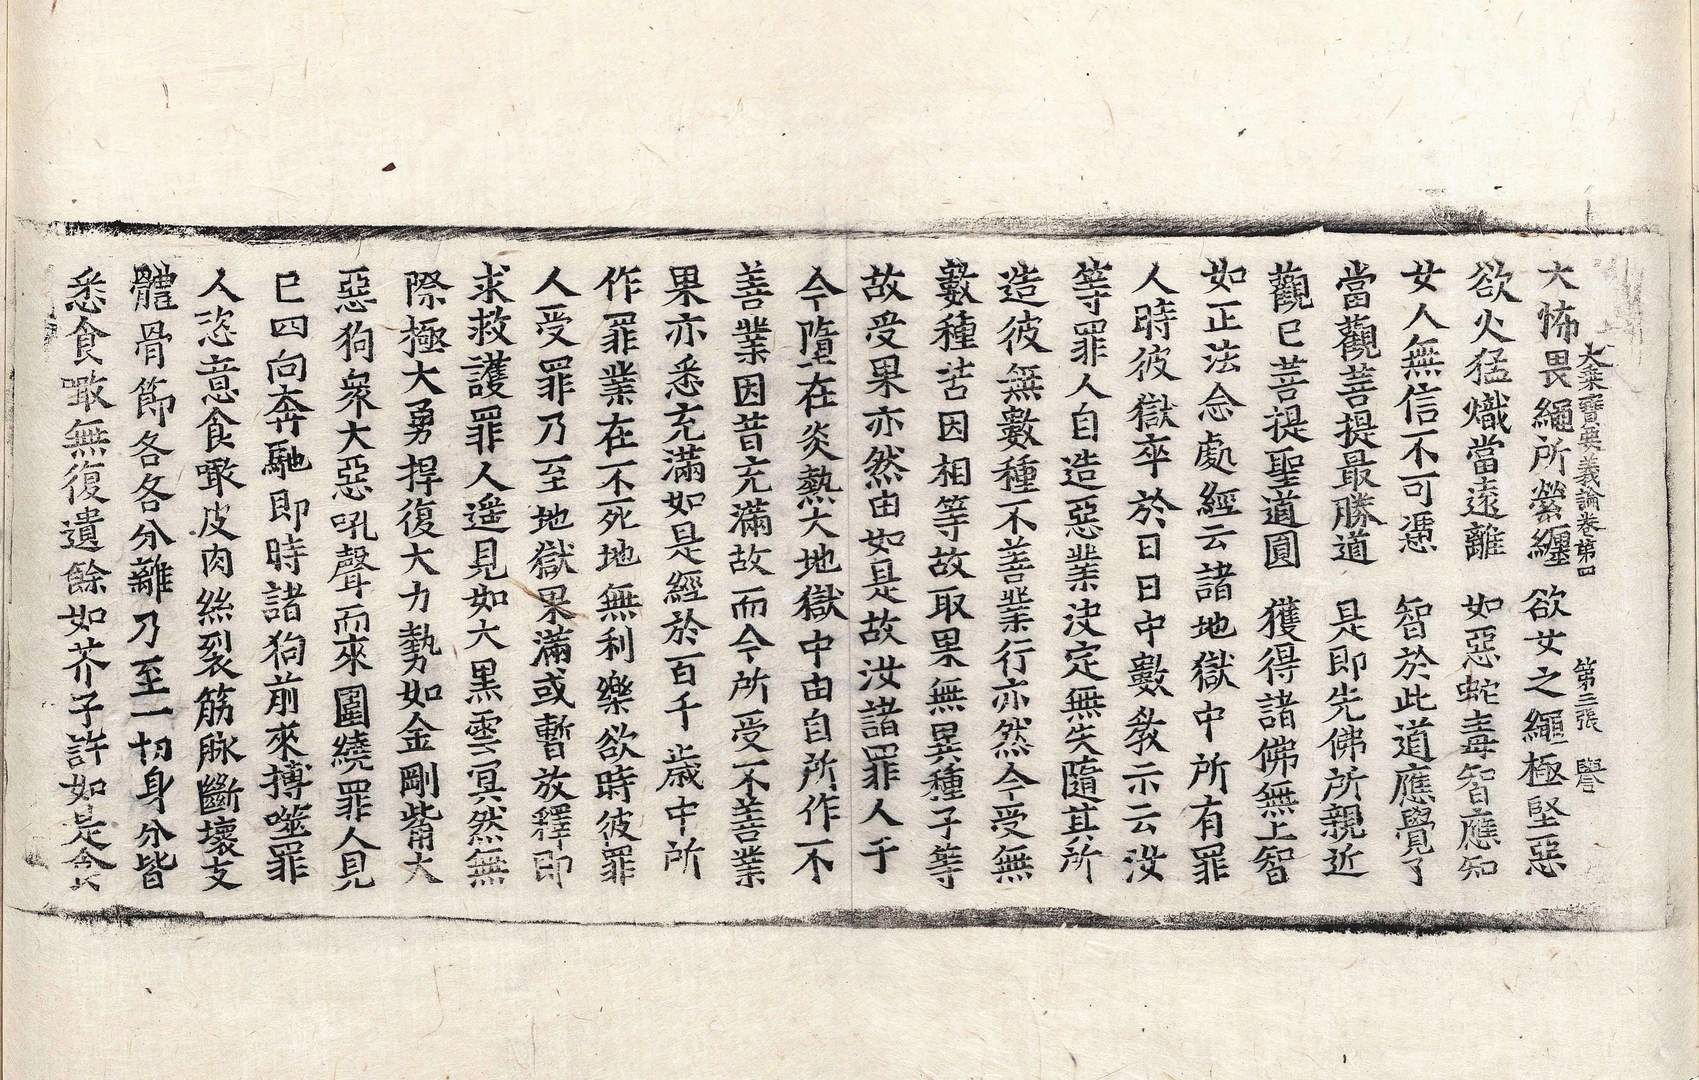 大乘寶要義論卷第四　第三張　譽
大怖畏繩所縈纏　欲女之繩極堅惡
欲火猛熾當遠離　如惡蛇毒智應知
女人無信不可憑　智於此道應覺了
當觀菩提最勝道　是即先佛所親近
觀已菩提聖道圓　獲得諸佛無上智
如正法念處經云諸地獄中所有罪
人時彼獄卒於日日中數教示云汝
等罪人自造惡業決定無失隨其所
造彼無數種不善業行亦然今受無
數種苦因相等故取果無異種子等
故受果亦然由如是故汝諸罪人于
今墮在炎熱大地獄中由自所作不
善業因昔充滿故而今所受不善業
果亦悉充滿如是經於百千歲中所
作罪業在不死地無利樂欲時彼罪
人受罪乃至地獄果滿或暫放釋即
求救護罪人遥見如大黑雲冥然無
際極大勇捍復大力勢如金剛觜大
惡狗衆大惡吼聲而來圍繞罪人見
已四向奔馳即時諸狗前來搏噬罪
人恣意食噉皮肉絲裂筋脉斷壞支
體骨節各各分離乃至一切身分皆
悉食噉無復遺餘如芥子許如是食